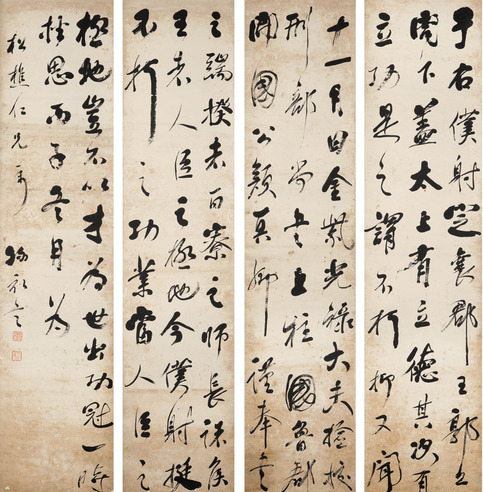 于右僕射定襄郡王郭公
閣下蓋太上有立德其次有
立功是之謂不朽抑又聞
十一月日金紫光祿大夫檢校
刑部尚書上柱國魯郡
開國公顏真卿謹奉書
之端揆者百寮之師長諸侯
王者人臣之極地今僕射挺
不朽之功業當人臣之
極地豈不以才為世出功冠一時
挫思丙子冬月為
松樵仁兄